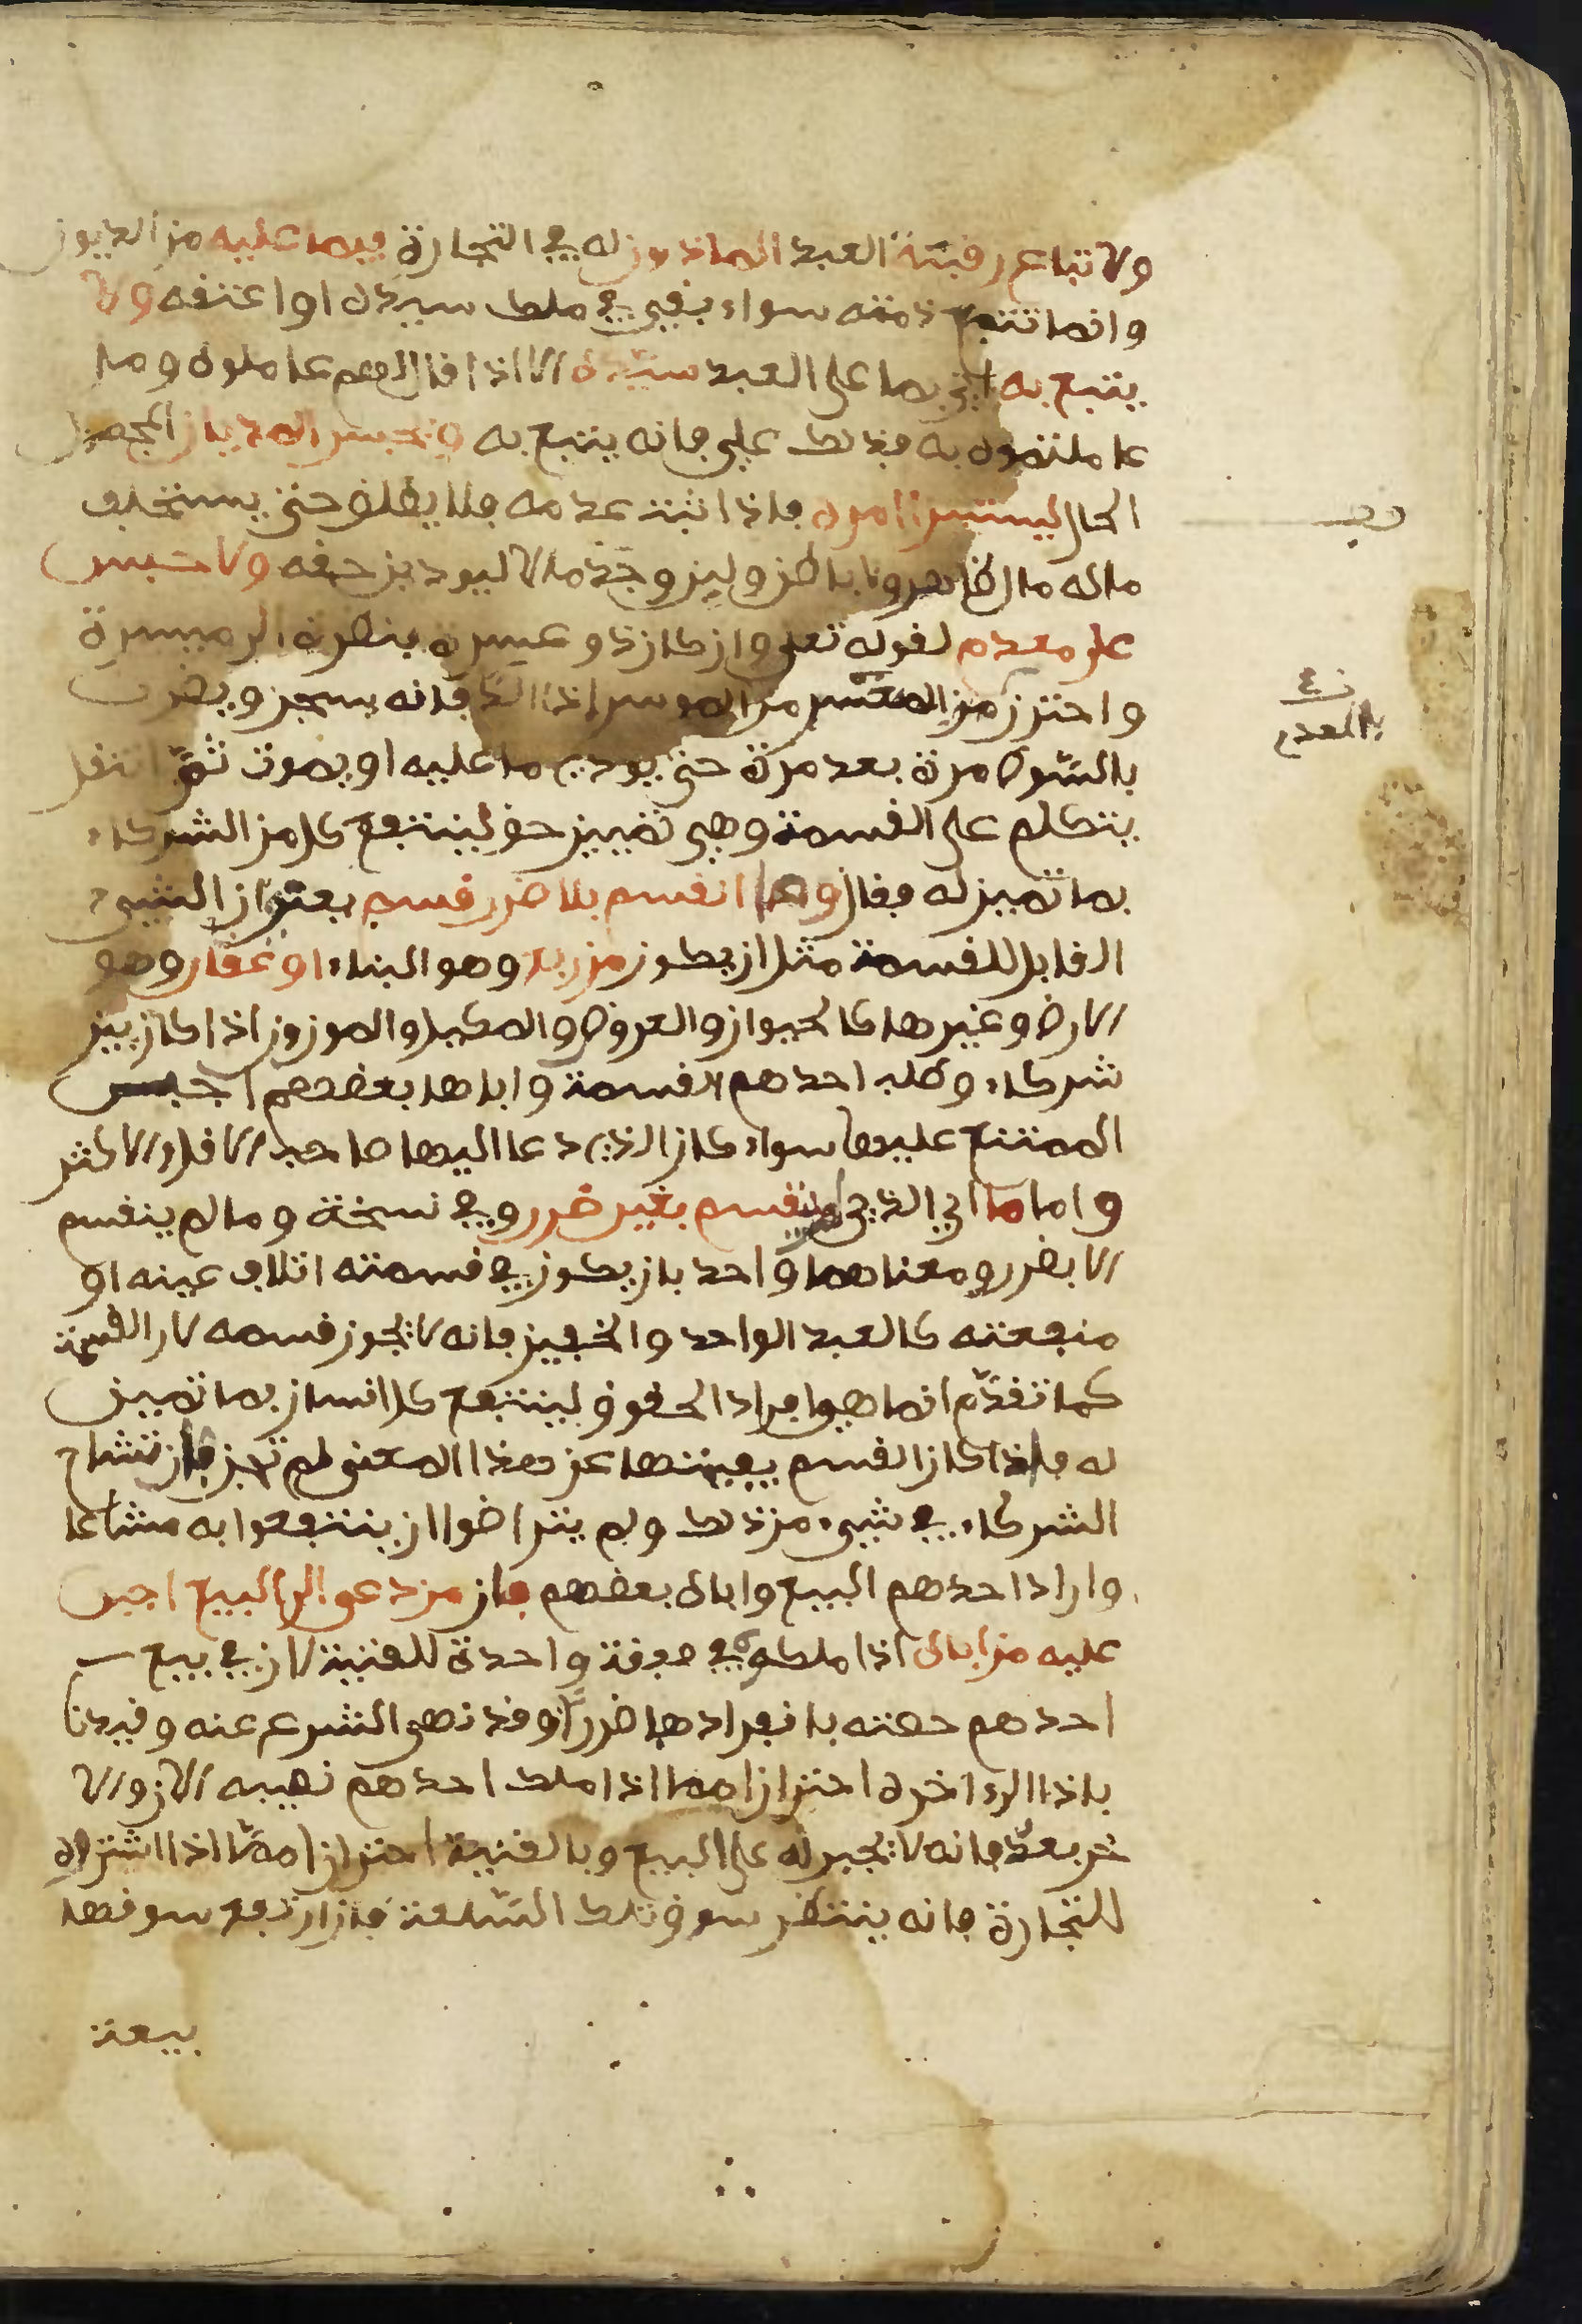 ولا تباع رقبة العبد الماذون له في التجارة فيما عليه من الديون
وانما تتبع ذمته سواء بقي في ملك سيده او اعتقه ولا
يتبع به اي بما على العبد سيده الا اذا قال لهم عاملوه وما
عاملتموه به فذلك علي فانه يتبع به ويحبس المديان المجهول
الحال ليستبرا امره فاذا ثبت عدمه فلا يطلق حتى يستحلف
ماله مال ظاهر ولا باطن ولين وجد مالا ليودين حقه ولا حبس
على معدم لقوله تعلى وان كان ذو عسرة فنظرة الى ميسرة
واحترز من المعسر من الموسر اذا الد فانه يسجن ويضرب
بالسوط مرة بعد مرة حتى يودي ما عليه او يموت ثم انتقل
يتكلم على القسمة وهي تمييز حق لينتفع كل من الشركاء
بما تميز له فقال وما انقسم بلا ضرر قسم بعنوان الشيء
القابل للقسمة مثل ان يكون من ربع وهو البناء او عقار وهو
الارض وغيرها كالحيوان والعروض والمكيل والموزون اذا كان بين
شركاء وطلب احدهم القسمة واباها بعضهم اجبر
الممتنع عليها سواء كان الذي دعا اليها صاحب الاقل او الاكثر
واما ما اي الذي لم ينقسم بغير ضرر وفي نسخة وما لم ينقسم
الا بضرر ومعناهما واحد بان يكون في قسمته اتلاف عينه او
منفعته كالعبد الواحد والخفين فانه لا يجوز قسمه لان القسمة
كما تقدم انما هي افراد الحقوق لينتفع كل انسان بما تميز
له فاذا كان القسم يفيتها عن هذا المعنى لم تجز فان تشاح
الشركاء في شيء من ذلك ولم يتراضوا ان ينتفعوا به مشاعا
واراد احدهم البيع واباه بعضهم فان من دعى الى البيع اجبر
عليه من اباه اذا ملكوه في صفقة واحدة للقنية لان في بيع
احدهم حصته بانفرادها ضررا وقد نهى الشرع عنه وقيدنا
باذا الى اخره احترازا مما اذا ملك احدهم نصيبه الان والا
خر بعد فانه لا يجبر له على البيع وبالقنية احترازا مما اذا اشتروه
للتجارة فانه ينتظر سوق تلك السلعة فان ارتفع سوقها
بيعت
قف
نـ
بالعدم